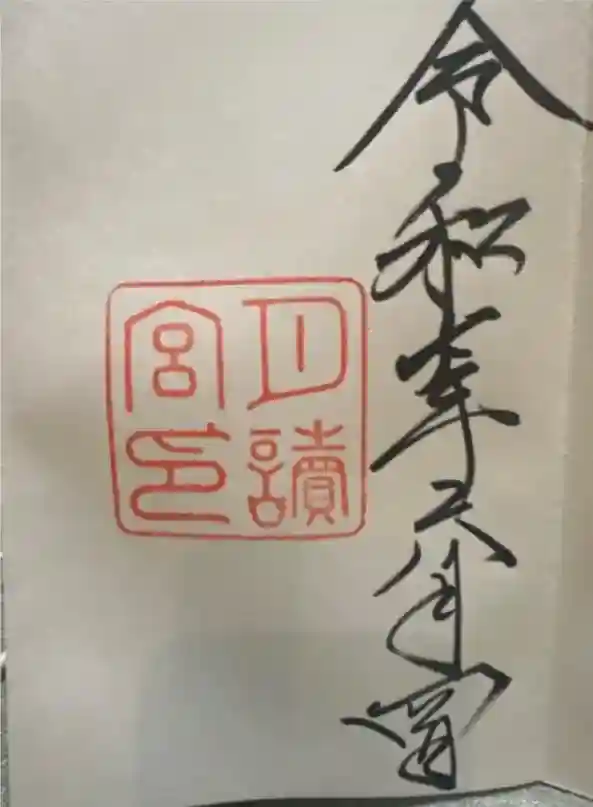 令和年六月日
月讀
宮印